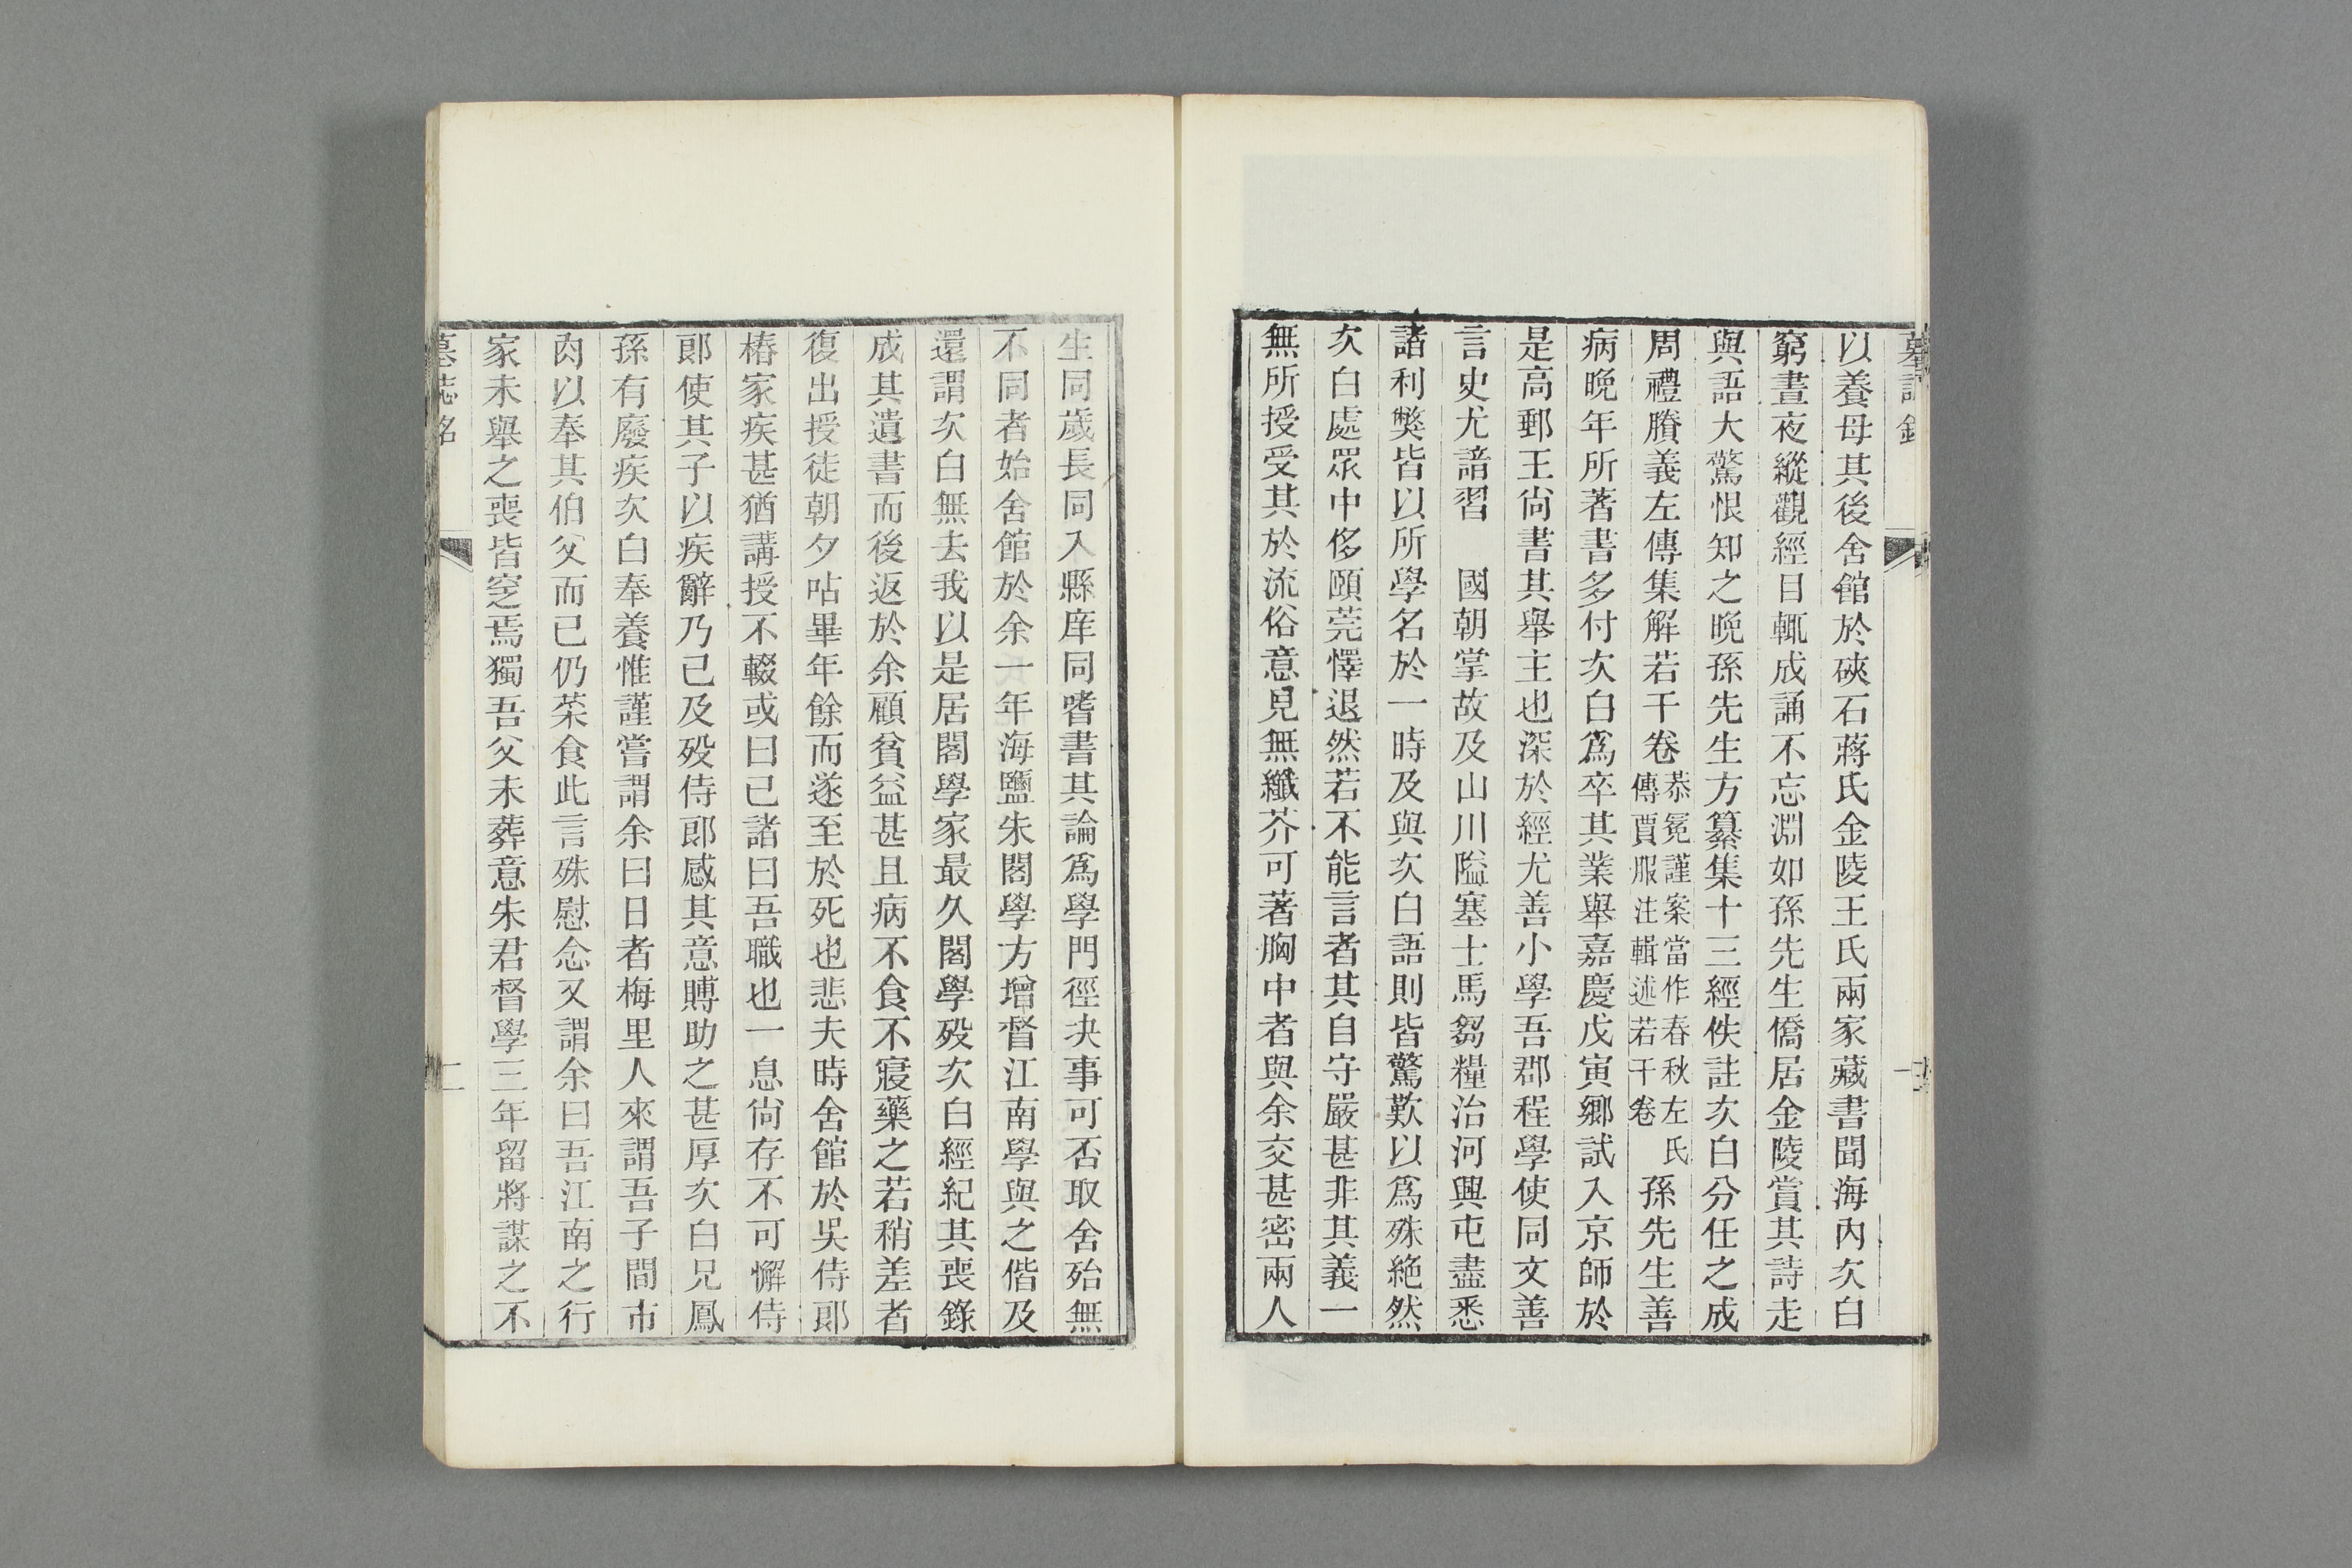 以養母其後舍館於硤石蔣氏金陵王氏兩家藏書聞海內次白
窮晝夜縱觀經目輒成誦不忘淵如孫先生僑居金陵賞其詩走
與語大驚恨知之晚孫先生方纂集十三經佚註次白分任之成
周禮賸義左傳集解若干卷恭冕謹案當作春秋左氏傳賈服注輯述若干卷孫先生善
病晚年所著書多付次白爲卒其業舉嘉慶戊寅鄉試入京師於
是高郵王尙書其舉主也深於經尤善小學吾郡程學使同文善
言史尤諳習　國朝掌故及山川隘塞士馬芻糧治河興屯盡悉
諸利獘皆以所學名於一時及與次白語則皆驚歎以爲殊絶然
次白處眾中侈頤莞懌退然若不能言者其自守嚴甚非其義一
無所授受其於流俗意見無纖芥可著胸中者與余交甚密兩人
生同歲長同入縣庠同嗜書其論爲學門徑決事可否取舍殆無
不同者始舍館於余一年海鹽朱閣學方增督江南學與之偕及
還謂次白無去我以是居閣學家最久閣學歿次白經紀其喪錄
成其遺書而後返於余顧貧益甚且病不食不寢藥之若稍差者
復出授徒朝夕呫畢年餘而遂至於死也悲夫時舍館於吳侍郞
椿家疾甚猶講授不輟或曰已諸曰吾職也一息尙存不可懈侍
郞使其子以疾辭乃已及歿侍郞感其意賻助之甚厚次白兄鳳
孫有廢疾次白奉養惟謹嘗謂余曰日者梅里人來謂吾子間市
肉以奉其伯父而已仍菜食此言殊慰念又謂余曰吾江南之行
家未舉之喪皆窆焉獨吾父未葬意朱君督學三年留將謀之不
墓誌名
二